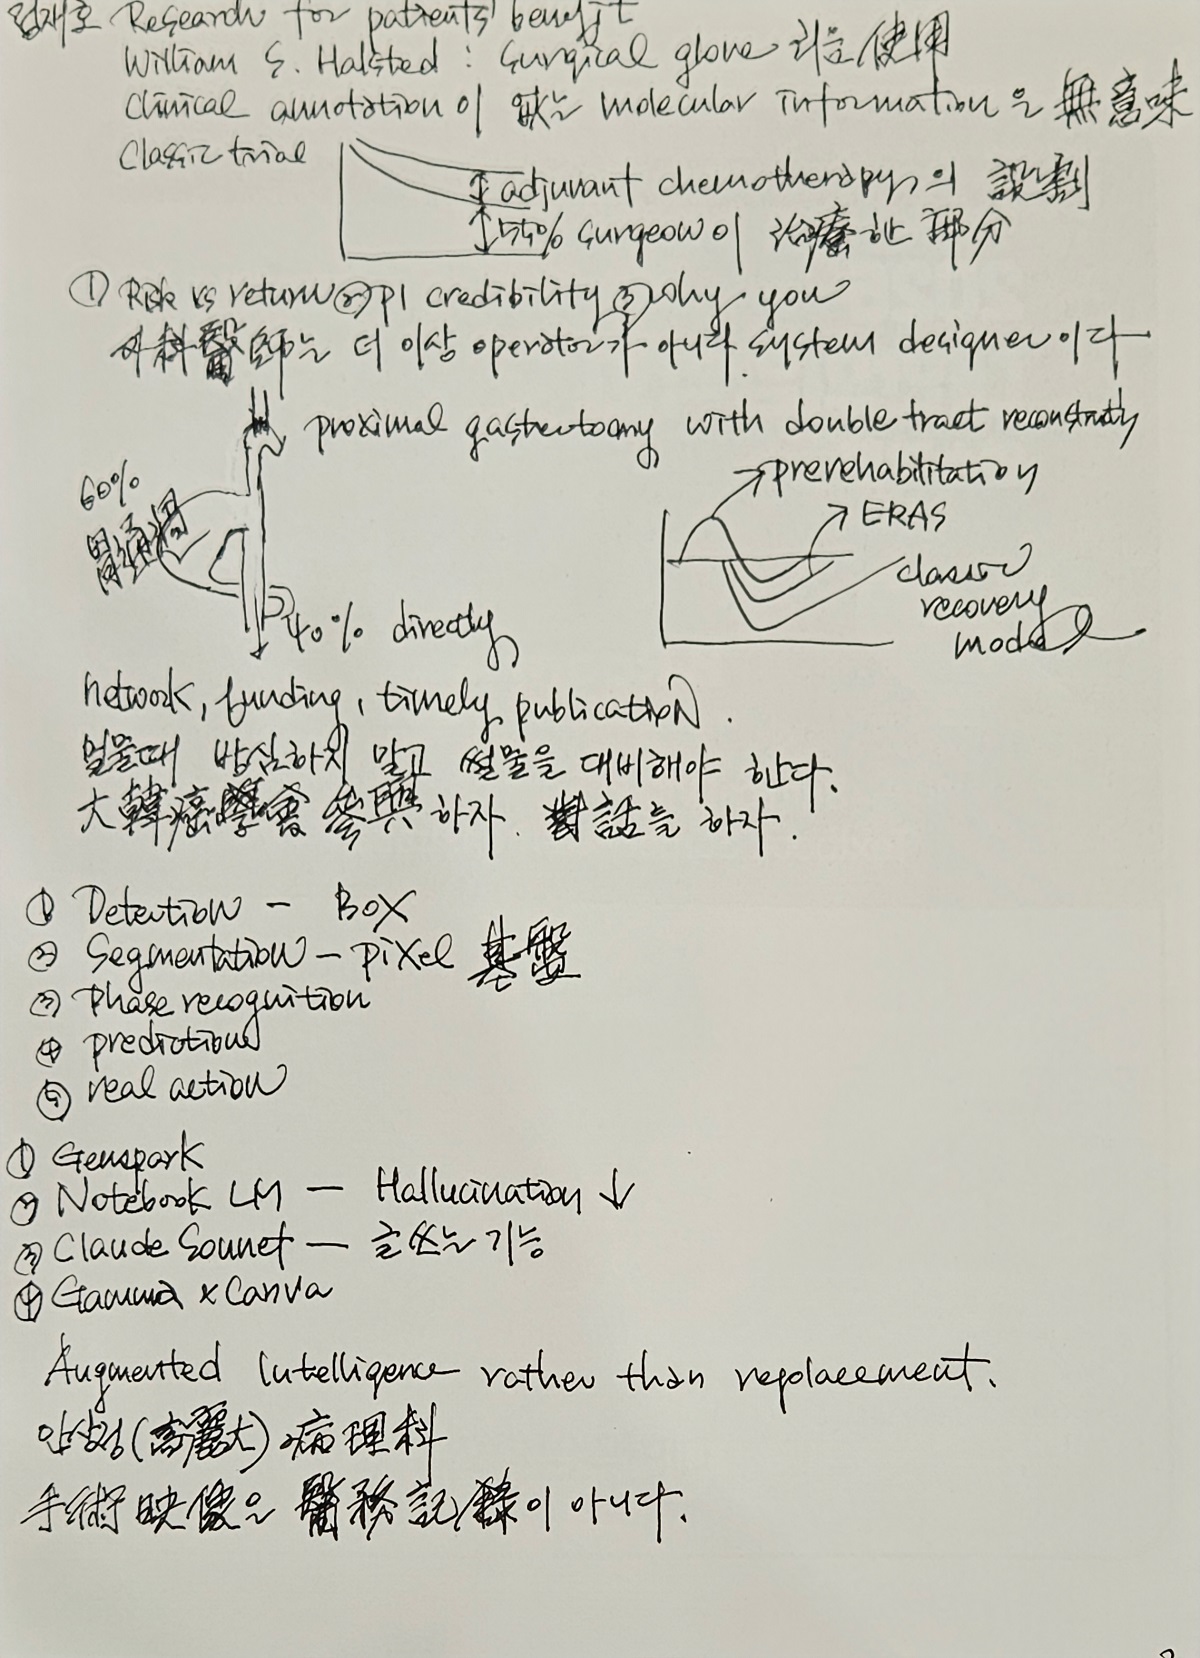 Research for patients' benefit
William S. Halsted : Surgical glove 최초 使用
Clinical annotation이 없는 molecular information은 無意味
Classic trial
adjuvant chemotherapy의
55% surgeon이 治療한 部分
① Risk vs return ② PI credibility ③ why you
外科醫師는 더 이상 operator가 아니라 system designer이다
proximal gastrectomy with double tract
60%
胃通過
40% directly
prerehabilitation
ERAS
classic
recovery
model
network, funding, timely publication.
밀물때 방심하지 말고 썰물을 대비해야 한다.
大韓癌學會 參與하자. 對話를 하자.
① Detection - Box
② Segmentation - pixel 基盤
③ Phase recognition
④ prediction
⑤ real action
① Genspark
② Notebook LM - Hallucination ↓
③ Claude Sonnet - 글쓰는 기능
④ Gamma x Canva
Augmented Intelligence rather than replacement.
안상정(高麗大) 病理科
手術映像은 醫務記錄이 아니다.